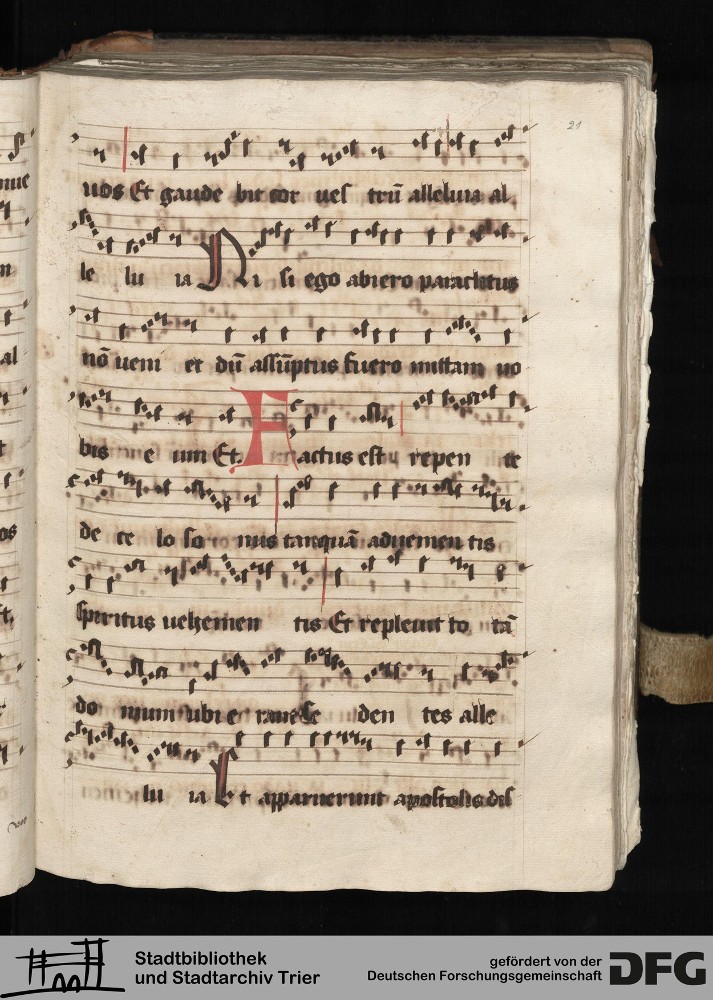 21
uos Et gaude bit cor ues trũ alleluia al
le lu ia Ni si ego abiero paraclitus
nõ ueni et dũ assũptus fuero mittam uo
bis e um Et Factus est repen te
de ce lo so nus tanquã aduenien tis
spiritus uehemen tis Et repleuit to tã
do mum ubi e rant se den tes alle
lu ia Et apparuerunt apostolis dis
Stadtbibliothek
und Stadtarchiv Trier
gefördert von der
Deutschen Forschungsgemeinschaft
DFG